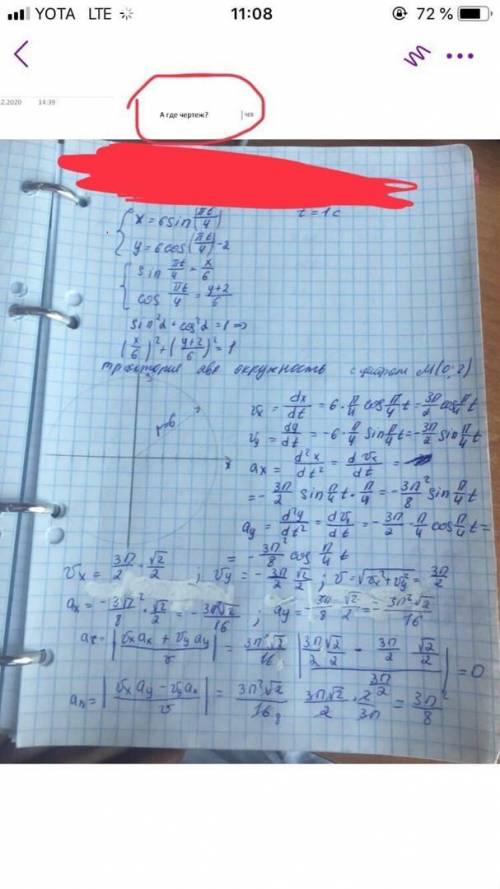 YOTA LTE 11:08 72 %
2.2020 14:39
А где чертеж?
x = 6 sin(πt/4) t = 1 c
y = 6 cos(πt/4) - 2
sin πt/4 = x/6
cos πt/4 = (y+2)/6
sin²α + cos²α = 1 =>
(x/6)² + ((y+2)/6)² = 1
окружность с центром M(0; 2)
Vx = dx/dt = 6 · π/4 cos π/4 t = 3π/2 cos π/4 t
Vy = dy/dt = -6 · π/4 sin π/4 t = -3π/2 sin π/4 t
ax = d²x/dt² = dVx/dt =
= -3π/2 sin π/4 t · π/4 = -3π²/8 sin π/4 t
ay = d²y/dt² = dVy/dt = -3π/2 · π/4 cos π/4 t =
= -3π²/8 cos π/4 t
x
Vx = 3π/2 · √2/2 ; Vy = -3π/2 √2/2 ; V = √(Vx² + Vy²) = 3π/2
ax = -3π²/8 · √2/2 = -3π²√2/16 ; ay = -3π²/8 · √2/2 = -3π²√2/16
aτ = |(Vx ax + Vy ay)/V| = 3π²√2/16 |(3π/2 √2/2 - 3π/2 √2/2)/(3π/2)| = 0
an = |(Vx ay - Vy ax)/V| = 3π²√2/16 8 3π√2/2 · 2/3π = 3π²/8